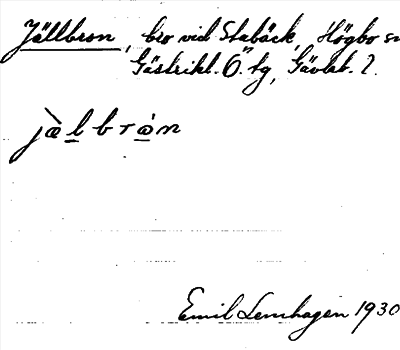 Jällbron, bro vid Stabäck, Högbo sn
Gästrikl. Ö. tg, Gävleb. l.
jæ̀lbrȯn
Emil Lemhagen 1930